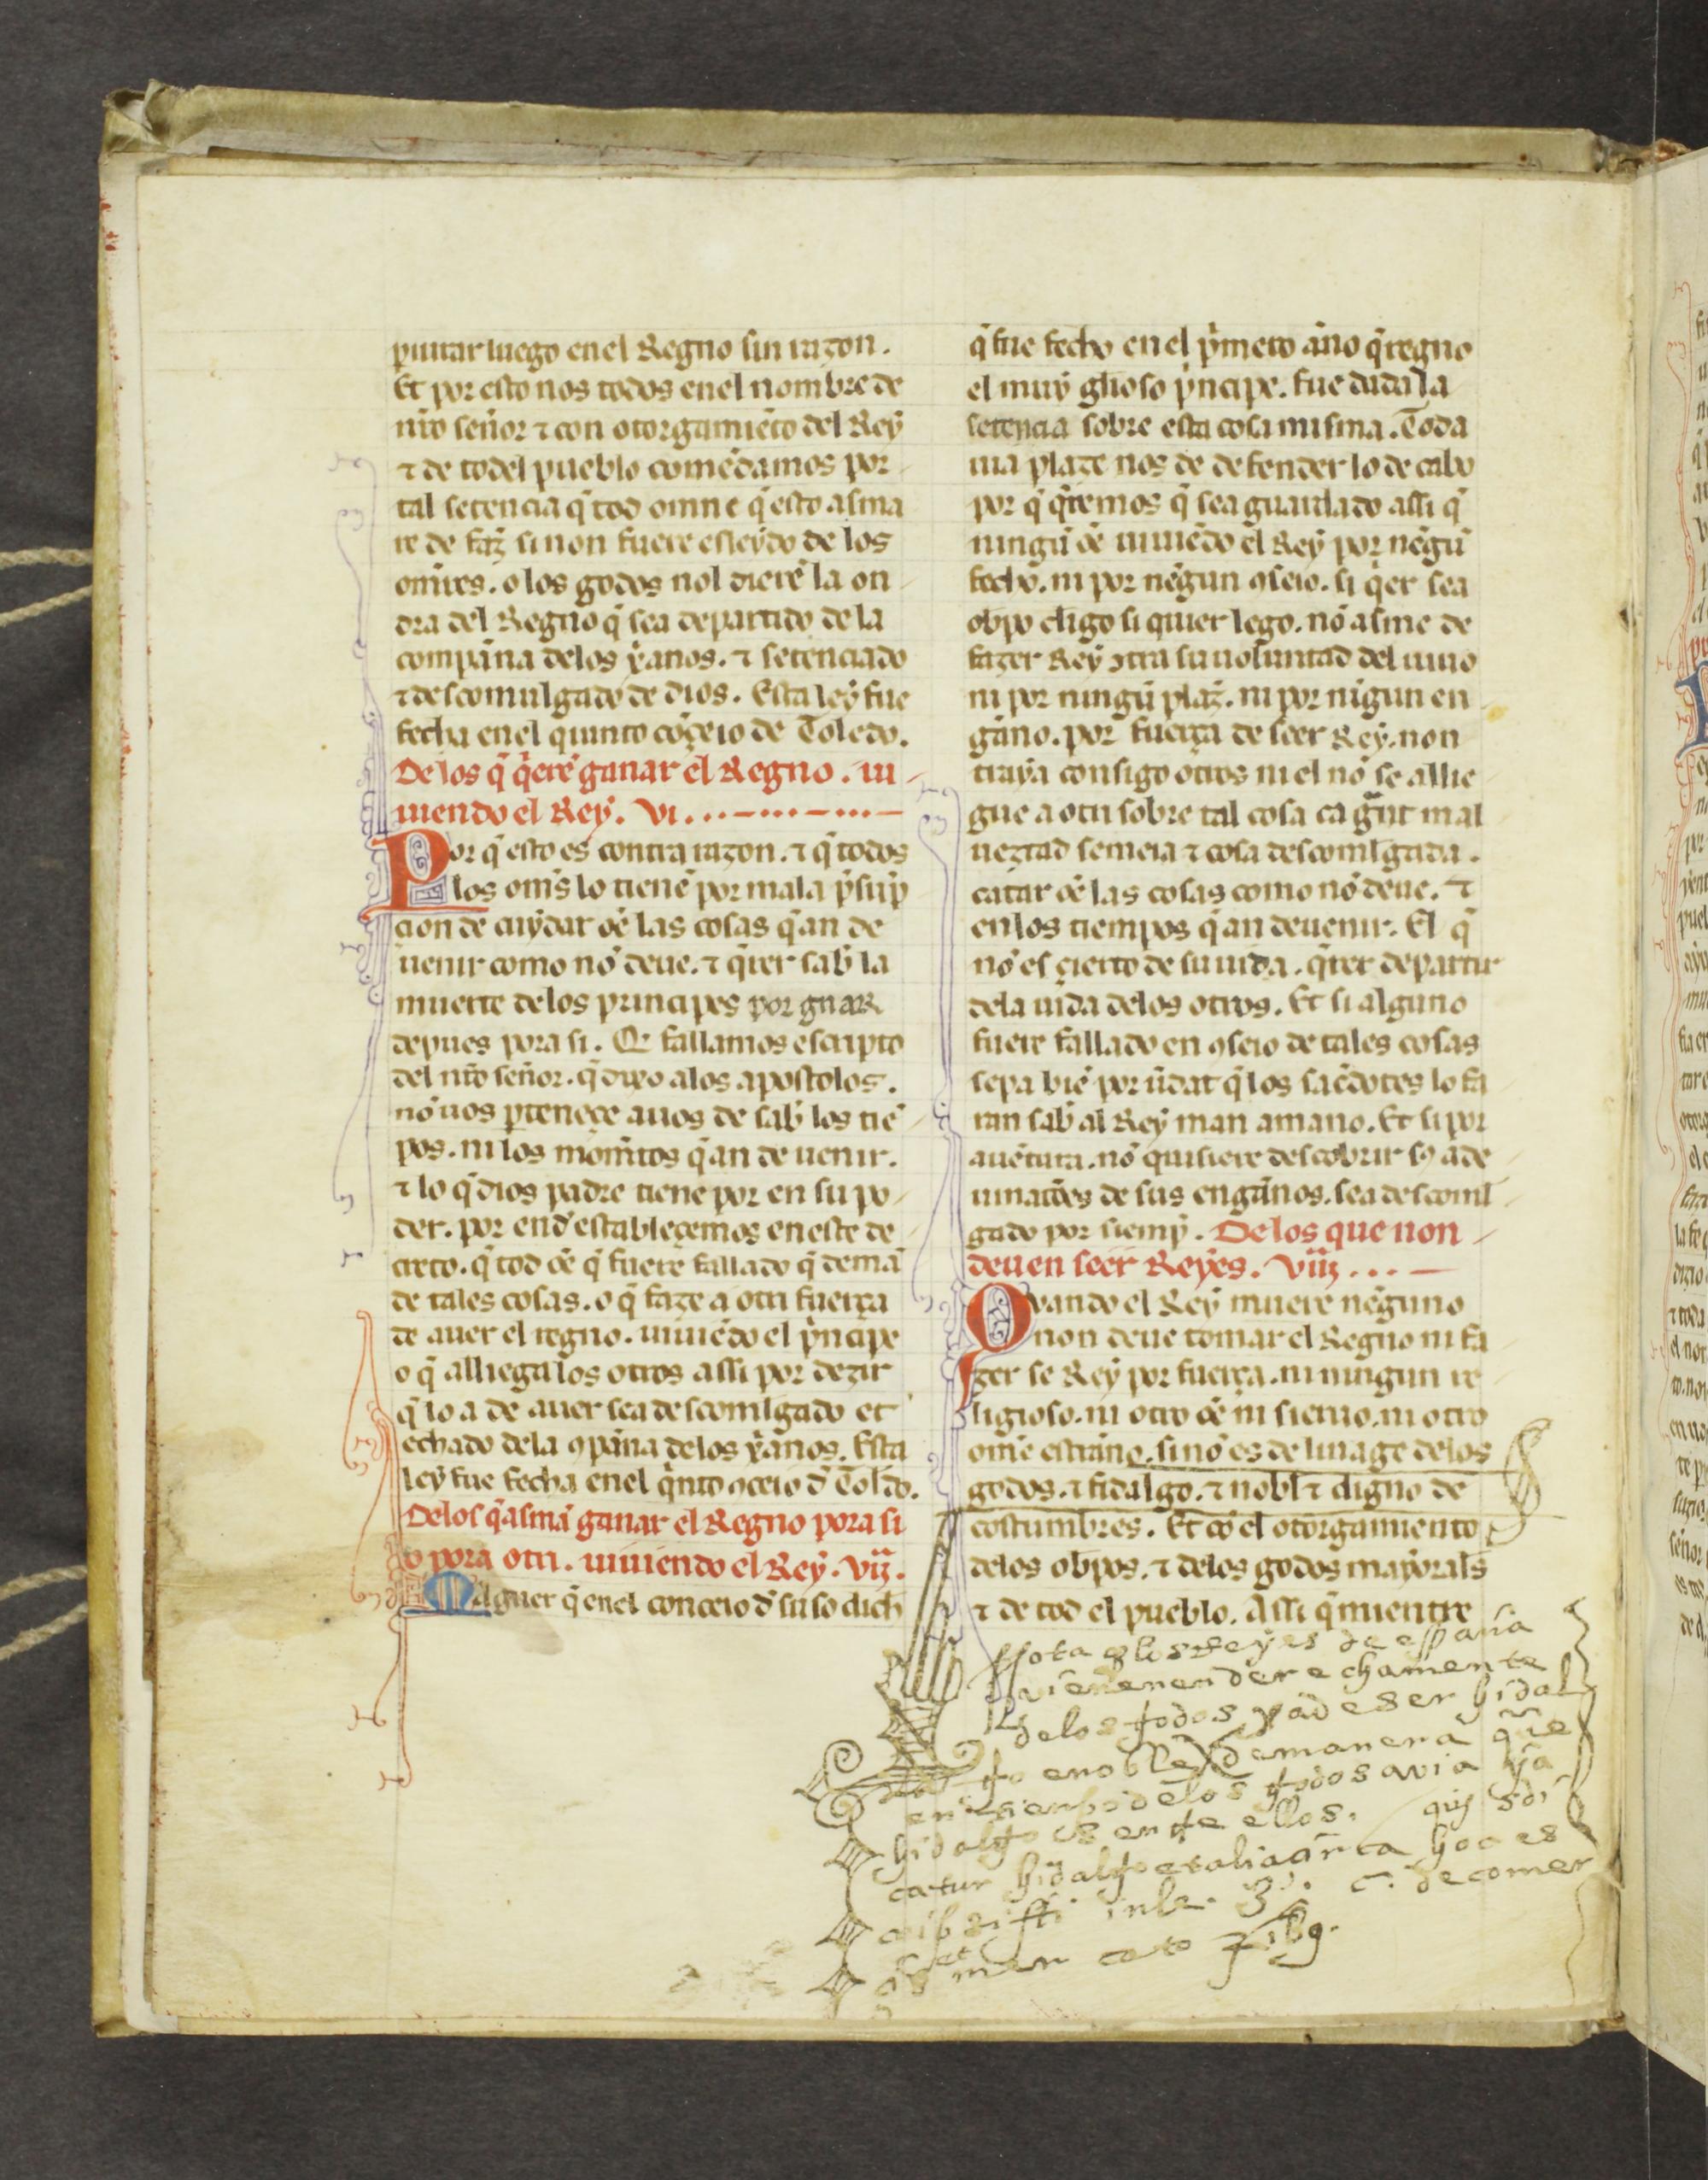 puntar luego enel Regno sin razon.
Et por esto nos todos enel nombre de
nr̃o señor ⁊ con otorgamiẽto del Rey
⁊ de todel pueblo comẽdamos por
tal setencia q̃ tod omne q̃ esto asma
re de faz̃ si non fuere esleydo de los
om̃es. o los godos nol dierẽ la on
dra del Regno q̃ sea departido de la
compãna delos xp̃anos. ⁊ setenciado
⁊ descomulgado de dios. Esta ley fue
fecha enel quinto cõçeio de Toledo.
Delos q̃ q̃erẽ ganar el Regno. ui
uiendo el Rey. vi.
Por q̃ esto es contra razon. ⁊ q̃ todos
los om̃s lo tienẽ por mala p̃sup̃
cion de cuydar õe las cosas q̃ an de
uenir como nõ deue. ⁊ q̃rer sab̃ la
muerte delos principes por gnar
depues pora si. Q̃ fallamos escripto
del nr̃o señor. q̃ dixo alos apostolos.
nõ uos ꝑteneçe auos de sab̃ los tiẽ
pos. ni los mom̃tos q̃ an de uenir.
⁊ lo q̃ dios padre tiene por en su po
der. por end̃ estableçemos en este de
creto. q̃ tod õe q̃ fuere fallado q̃ demã
de tales cosas. o q̃ faze a otri fuerça
de auer el regno. uiuiẽdo el p̃ncipe
o q̃ alliega los otros assi por dezir
q̃ lo a de auer sea descomlgado et
echado dela ꝯpãna delos xp̃anos. Esta
ley fue fecha enel q̃nto ꝯceio d̃ Toldo.
Delos q̃ asmã ganar el Regno pora si
o pora otri. uiuiendo el Rey. vij.
Maguer q̃ enel conceio d̃ suso dich
q̃ fue fecho en el p̃mero ãno q̃ regno
el muy glioso p̃ncipe. fue dada la
setencia sobre esta cosa misma. Toda
uia plaze nos de defender lo de cabo
por q̃ q̃remos q̃ sea guardado assi q̃
ningũ õe uiuiẽdo el Rey por nẽgũ
fecho. ni por nẽgun ꝯseio. si q̃er sea
obp̃o cligo si quier lego. nõ asme de
fazer Rey ꝯtra su uoluntad del uiuo
ni por ningũ plaz̃. ni por nĩgun en
gãno. por fuerça de seer Rey. non
traya consigo otros ni el nõ se allie
gue a otri sobre tal cosa ca grãt mal
ueztad semeia ⁊ cosa descomlgada.
catar õe las cosas como nõ deue. ⁊
en los tiempos q̃ an deuenir. El q̃
nõ es çierto de su uida. q̃rer departir
dela uida delos otros. Et si alguno
fuere fallado en ꝯseio de tales cosas
sepa biẽ por ũdat q̃ los sac̃dotes lo fa
ran sab̃ al Rey man amano. Et si por
auẽtura. nõ quisiere descobrir los ade
uinac̃es de sus engãnos. sea descoml
gado por siemp̃. Delos que non
deuen seer Reyes. viij.
Quando el Rey muere nẽguno
non deue tomar el Regno ni fa
zer se Rey por fuerça. ni ningun re
ligioso. ni otro õe ni sieruo. ni otro
omẽ estrãno. si nõ es de linage delos
godos. ⁊ fidalgo. ⁊ nobl ⁊ digno de
costumbres. Et cõ el otorgamiento
delos obpos. ⁊ delos godos mayorals
⁊ de tod el pueblo. Assi q̃ mientre
Nota q̃ los Reyes de españa
vienenen derechamente
delos godos y ade ser hidal
go enoble demanera que
en tienpo delos godos avia ya
hidalgos entre ellos. quis di
catur hidalgo